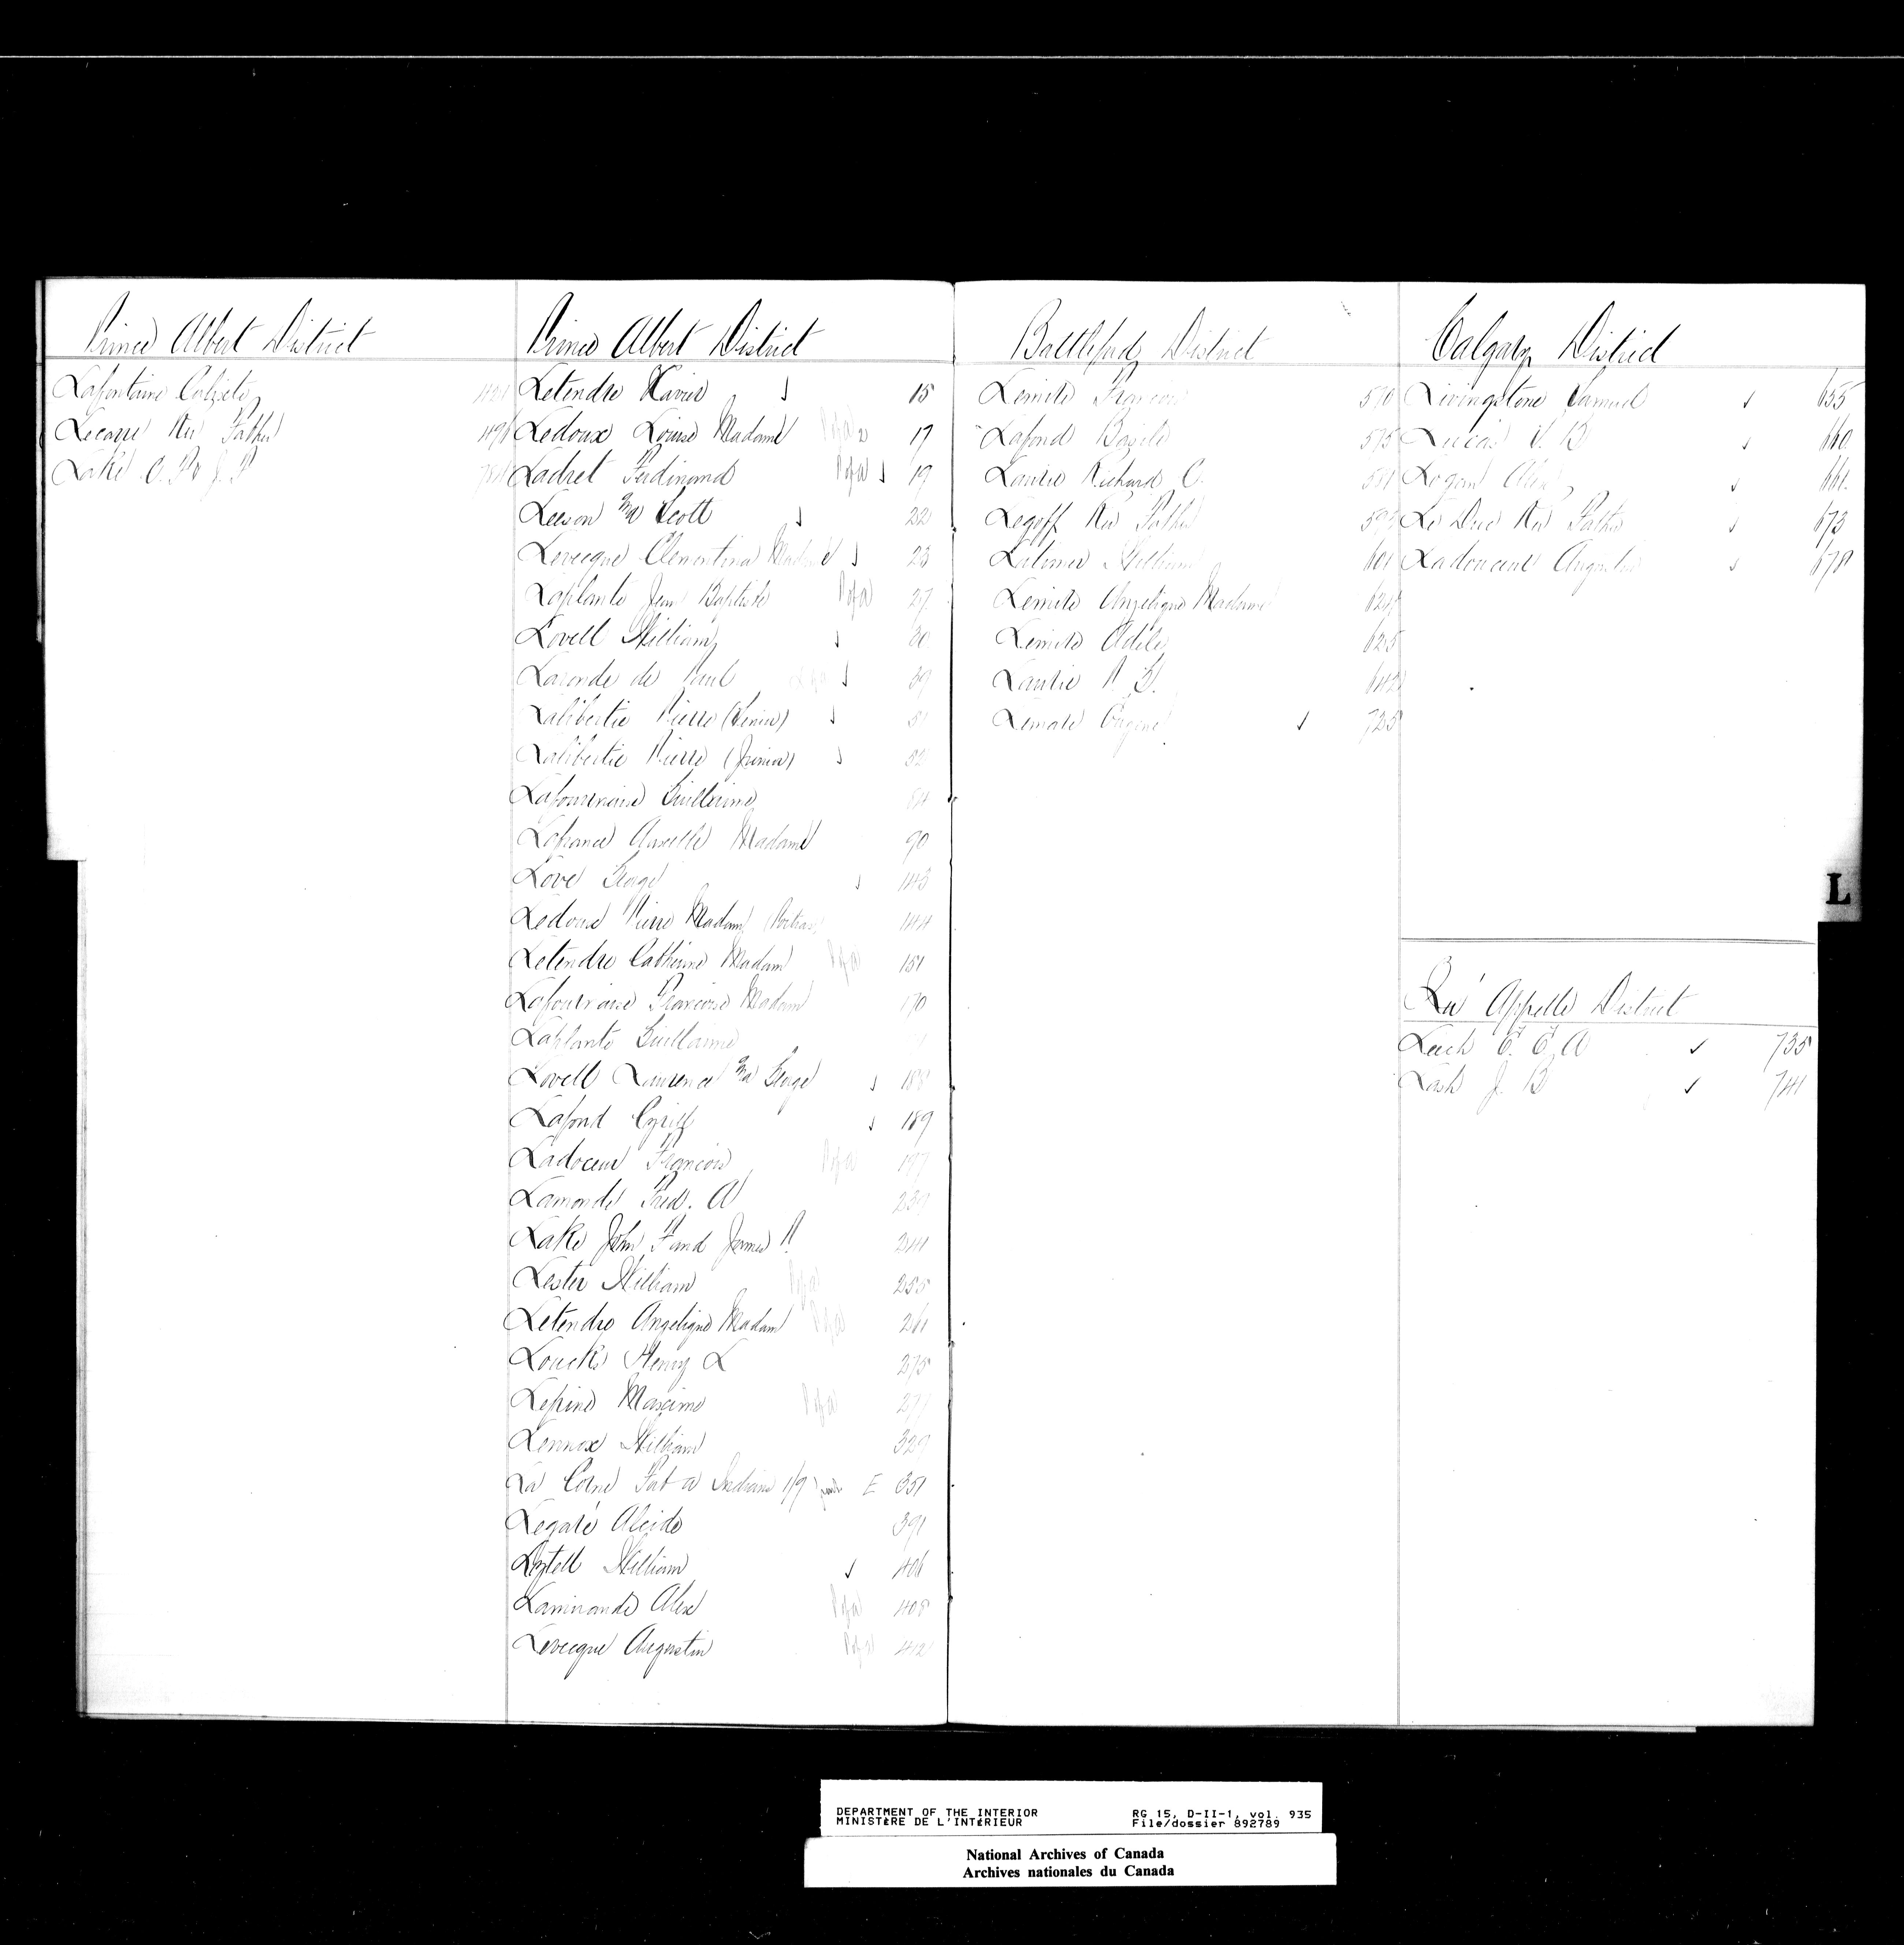 Prince Albert District
Lafontaine Calixte
Lecoque Rev Father
Lake
Prince Albert District
Letendre Xavier 15
Ledoux Louise Madame 17
Ladret Ferdinand 19
Leeson & Scott 22
Levecque Clementina Madame 23
Laplante Jean Baptiste 27
Lovell William 30
Laronde de Paul 39
Lalibertie Pierre (Senior) 51
Lalibertie Pierre (Junior) 52
Lafournaise Guillaume 84
Lafrance Madame 90
Love George 143
Ledoux Pierre Madam 144
Letendre Catherine Madam 151
Lafournaise Francoise Madam 170
Laplante Guillaume
Lovell Laurence & George 188
Lafond Cyrille 189
Ladoceur Francois
Lamonde Fred. A 239
Lake John F and James P. 244
Lester William 255
Letendre Angelique Madam 261
Loucks Henry L 275
Lepine Maxime 277
Lennox William 329
La Corne Fort a Indians E 351
Legaré Alcide 391
Lyttell William 406
Laminande Alex 408
Levecque Augustin 412
Battleford District
Lemire Francois 570
Lafond Basile 575
Laurie Richard C. 581
Legoff Rev Father
Latimer William 601
Lemire Angelique Madame
Lemire Adele 625
Laurie P. G. 642
Lemare Eugene 725
Calgary District
Livingstone Samuel 655
Lucas 660
Logan Alex 661
Le Duc Rev Father 673
Ladouceur Augustin 678
Qu'Appelle District
Leech E. E. A 735
Lash J. B 741
L
DEPARTMENT OF THE INTERIOR
MINISTÈRE DE L'INTÉRIEUR
RG 15, D-II-1, vol. 935
File/dossier 892789
National Archives of Canada
Archives nationales du Canada